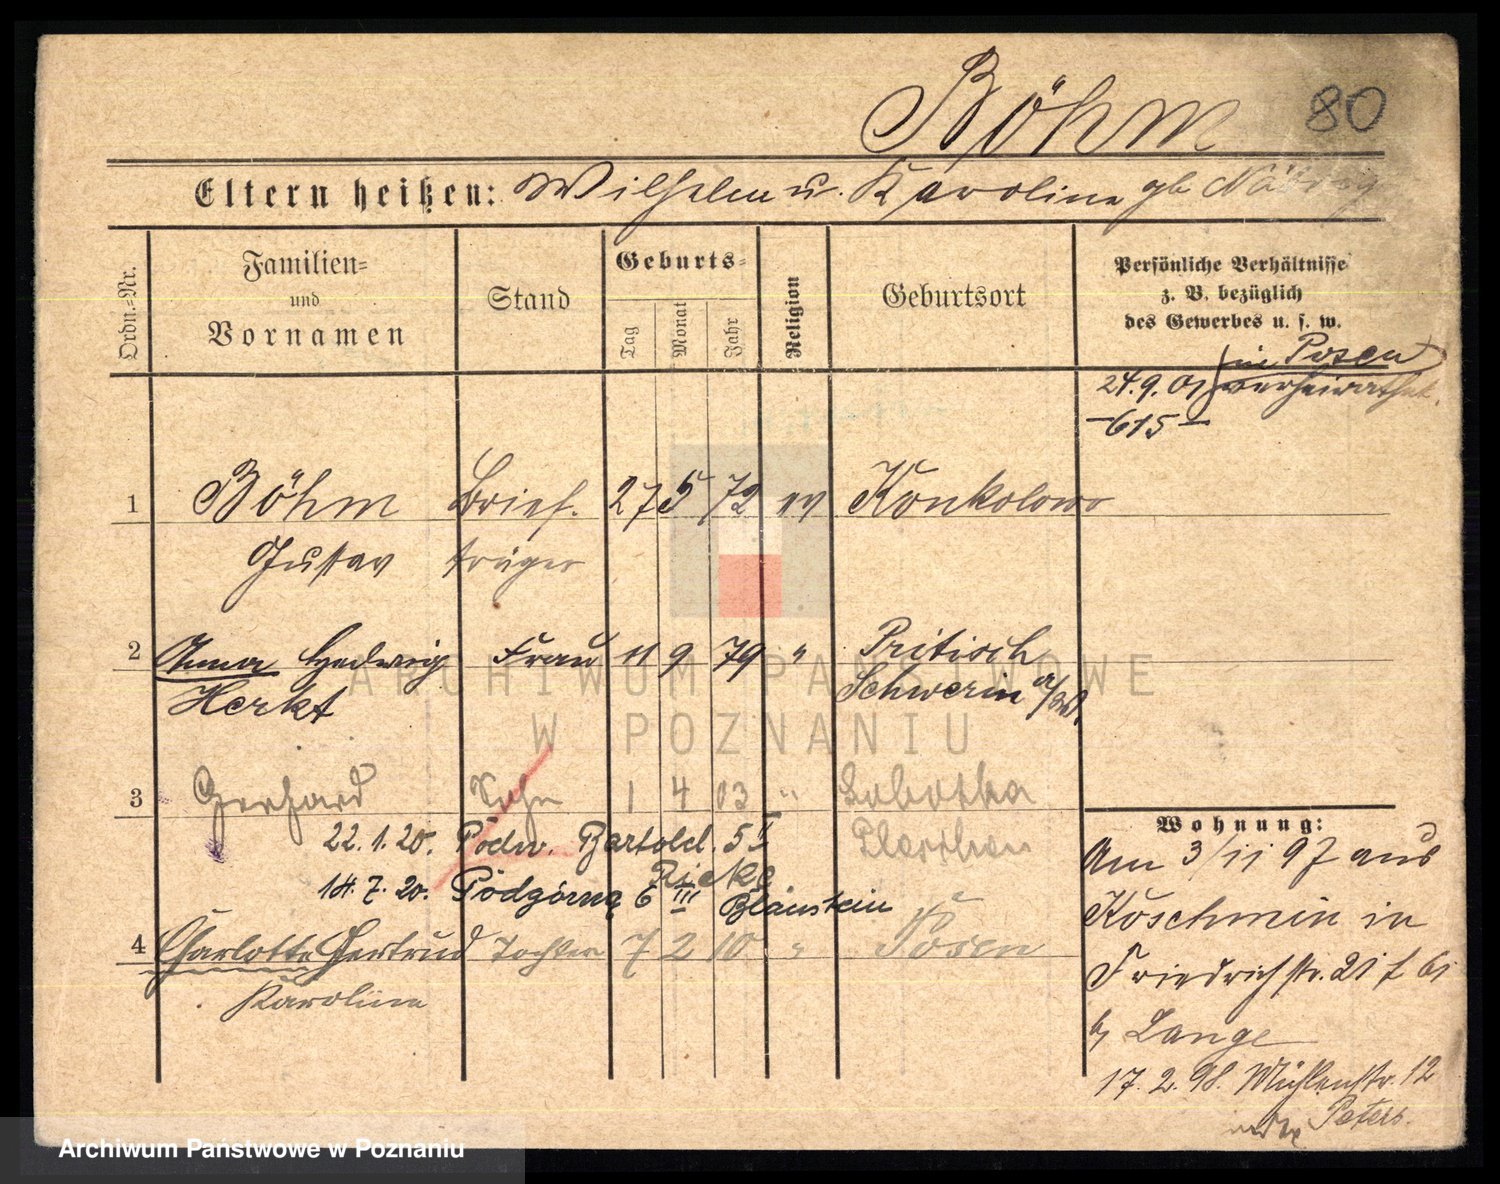 Böhm 80
Eltern heißen: Wilhelm u. Karoline gb
Ordn.=Nr.
Familien=
und
Vornamen
Stand
Geburts=
Tag
Monat
Jahr
Religion
Geburtsort
Persönliche Verhältnisse
z. B. bezüglich
des Gewerbes u. s. w.
in Posen
24.9.01 verheirathet.
-615-
1 Böhm Brief. 27 5 72 ev Konkolewo
Gustav träger
2 Anna Hedwig Frau 11 9 79 " Pritisch
Herkt Schwerin a/W.
3 Gerhard Sohn 1 4 03 " Sobotka
22.1.20. Podw. Bartold. 5 II Pleschen
14.7.20. Podgórna 6 III Blaustein
4 Charlotte Gertrud Tochter 7 2 10 " Posen
Karoline
Wohnung:
Am 3/11 97 aus
Koschmin in
Friedrichstr. 21
b/ Lange
17.2.98. Mühlenstr. 12
Peters.
ARCHIWUM PAŃSTWOWE
W POZNANIU
Archiwum Państwowe w Poznaniu